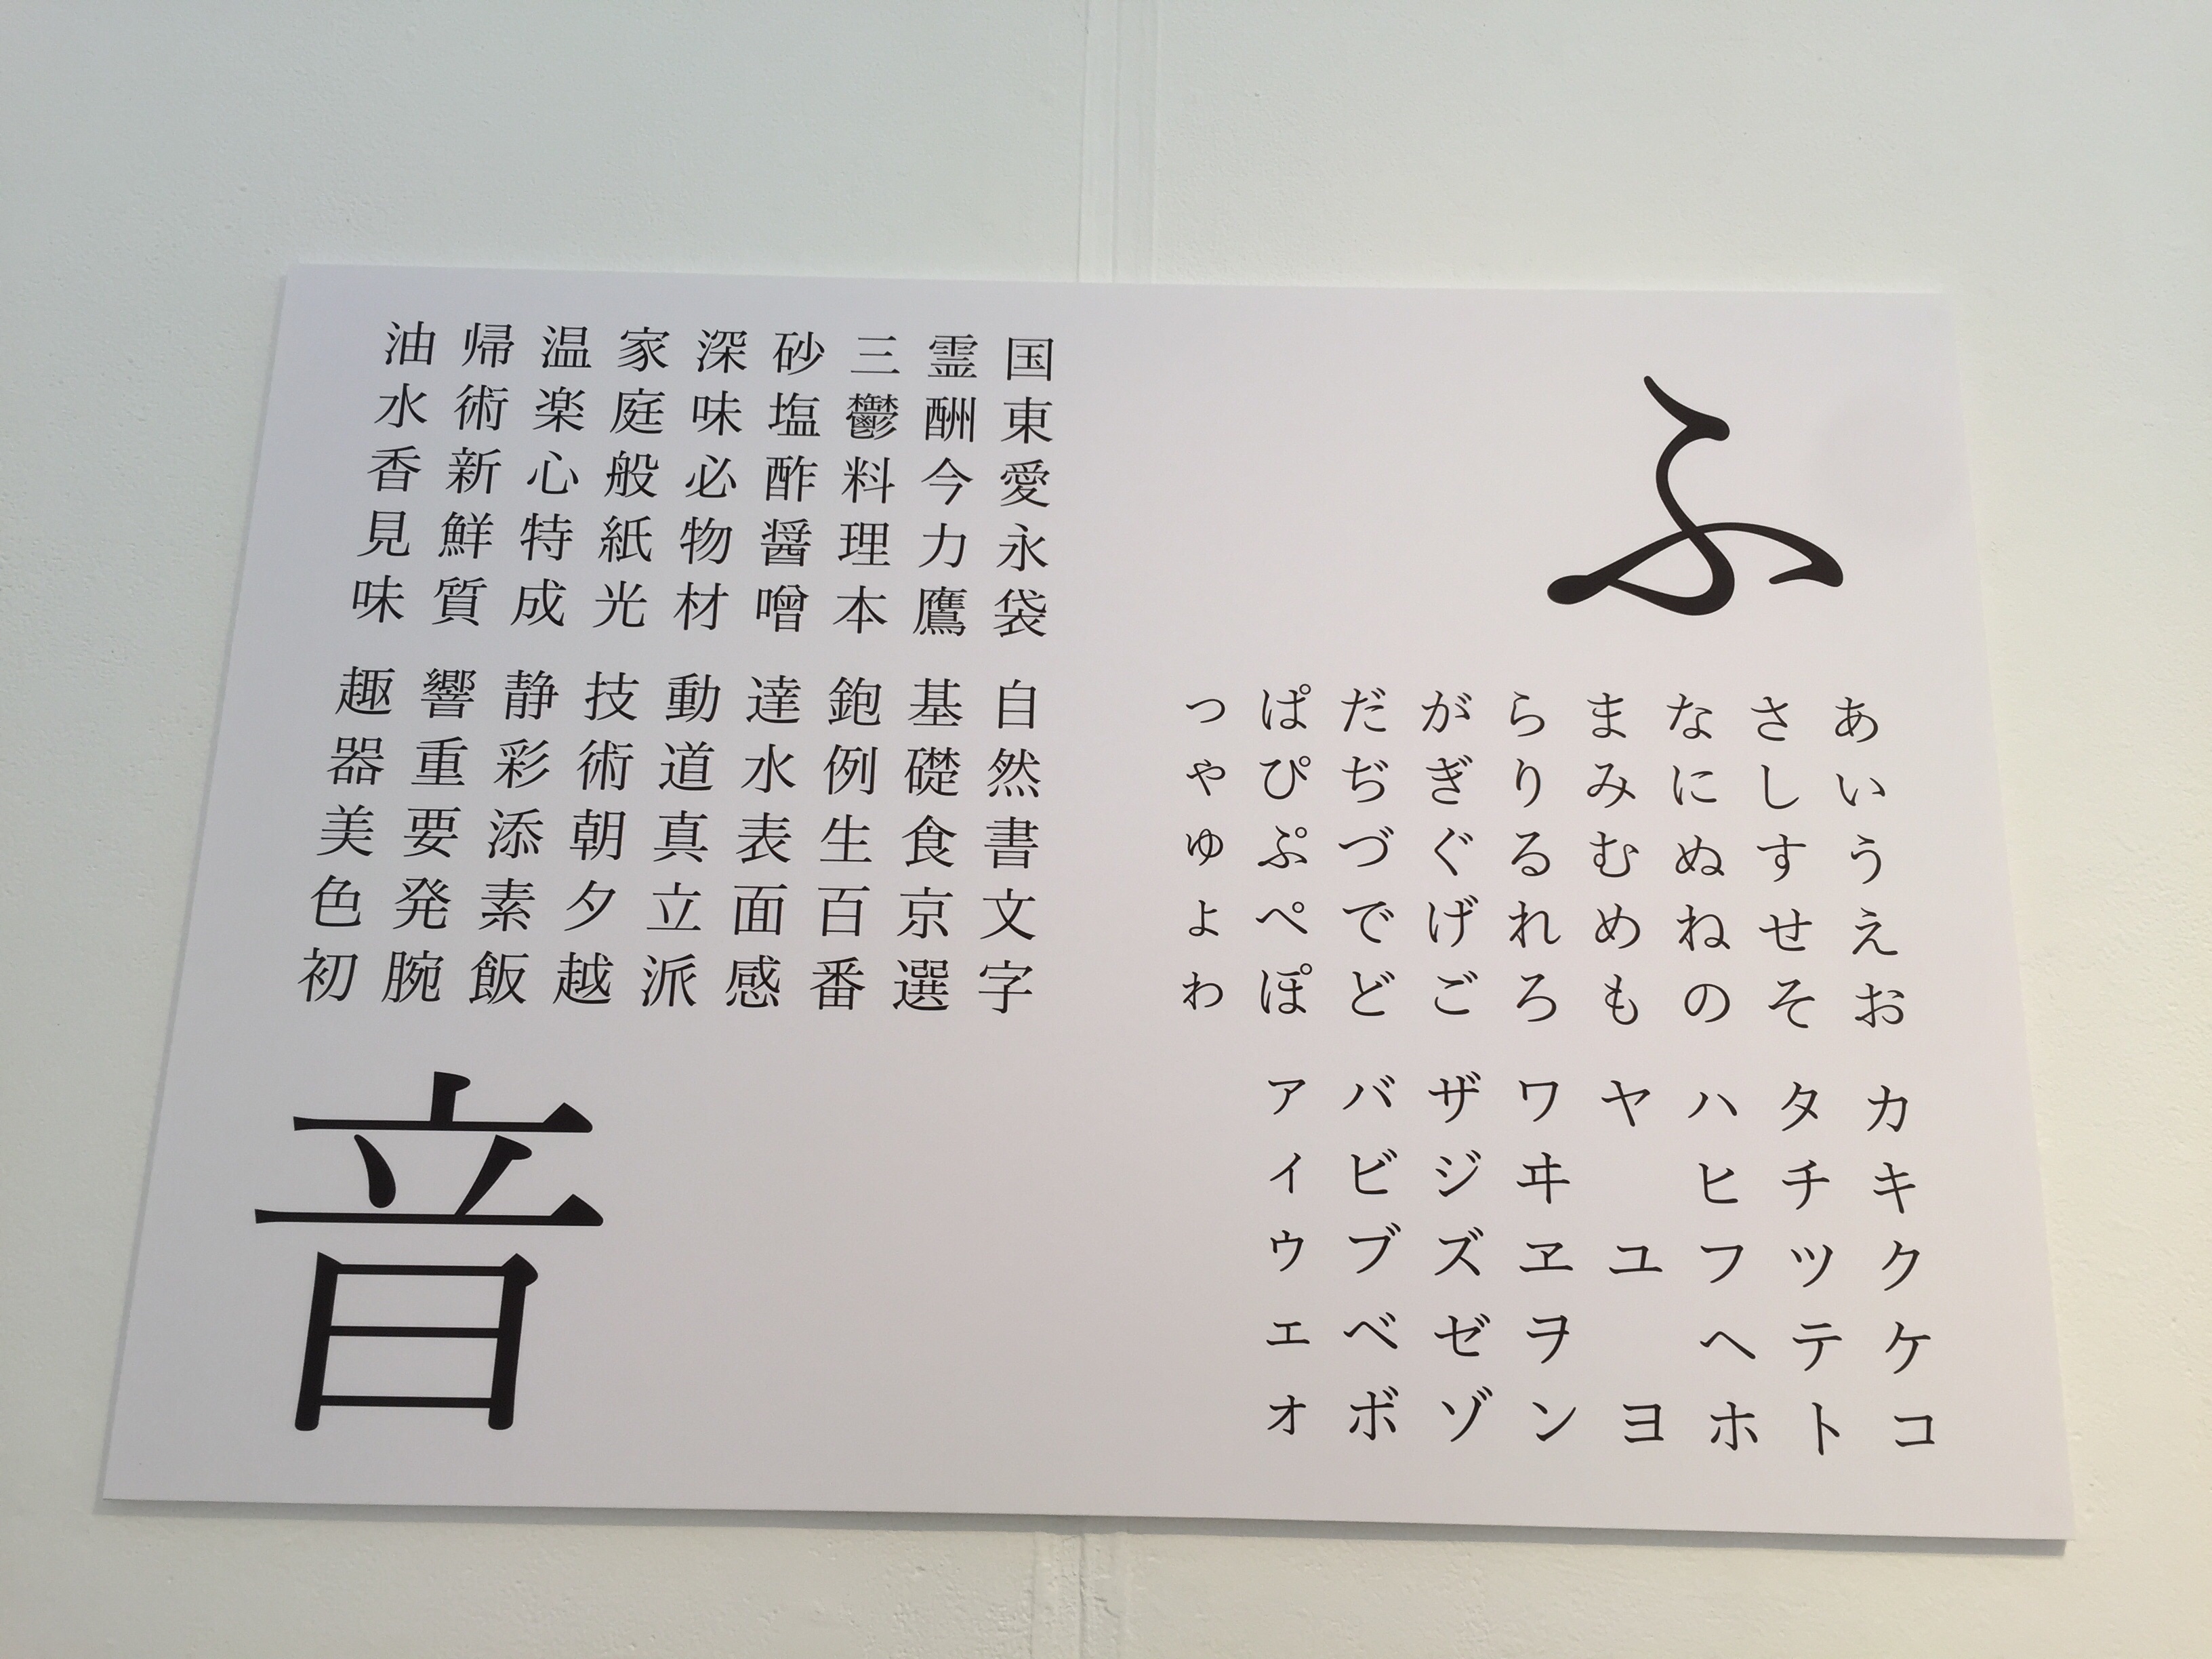 ふ
あいうえお
さしすせそ
なにぬねの
まみむめも
らりるれろ
がぎぐげご
だぢづでど
ぱぴぷぺぽ
っゃゅょゎ
カキクケコ
タチツテト
ハヒフヘホ
ヤ ユ ヨ
ワヰヱヲン
ザジズゼゾ
バビブベボ
ァィゥェォ
国東愛永袋
霊酬今力鷹
三鬱料理本
砂塩酢醤噌
深味必物材
家庭般紙光
温楽心特成
帰術新鮮質
油水香見味
自然書文字
基礎食京選
鉋例生百番
達水表面感
動道真立派
技術朝夕越
静彩添素飯
響重要発腕
趣器美色初
音